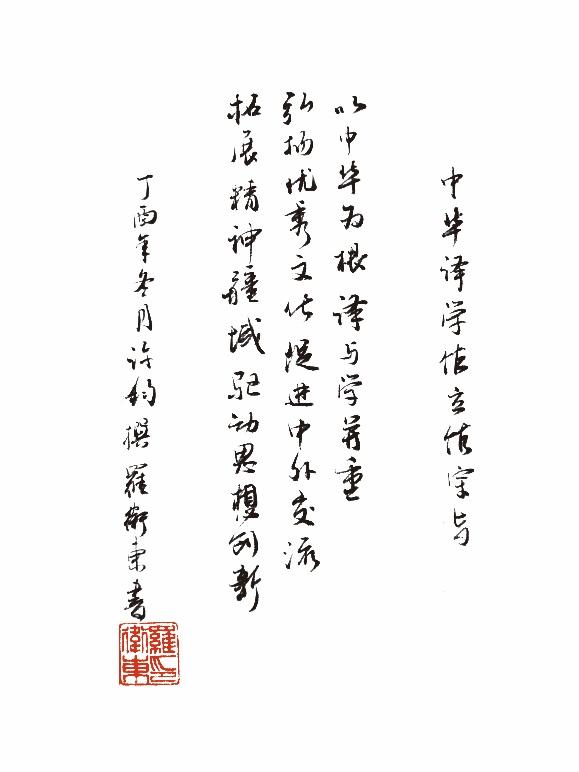 中华译学馆立馆宗旨
以中华为根 译与学并重
弘扬优秀文化 促进中外交流
拓展精神疆域 驱动思想创新
丁酉年冬月 许钧 撰 罗卫东 书
羅衛東印